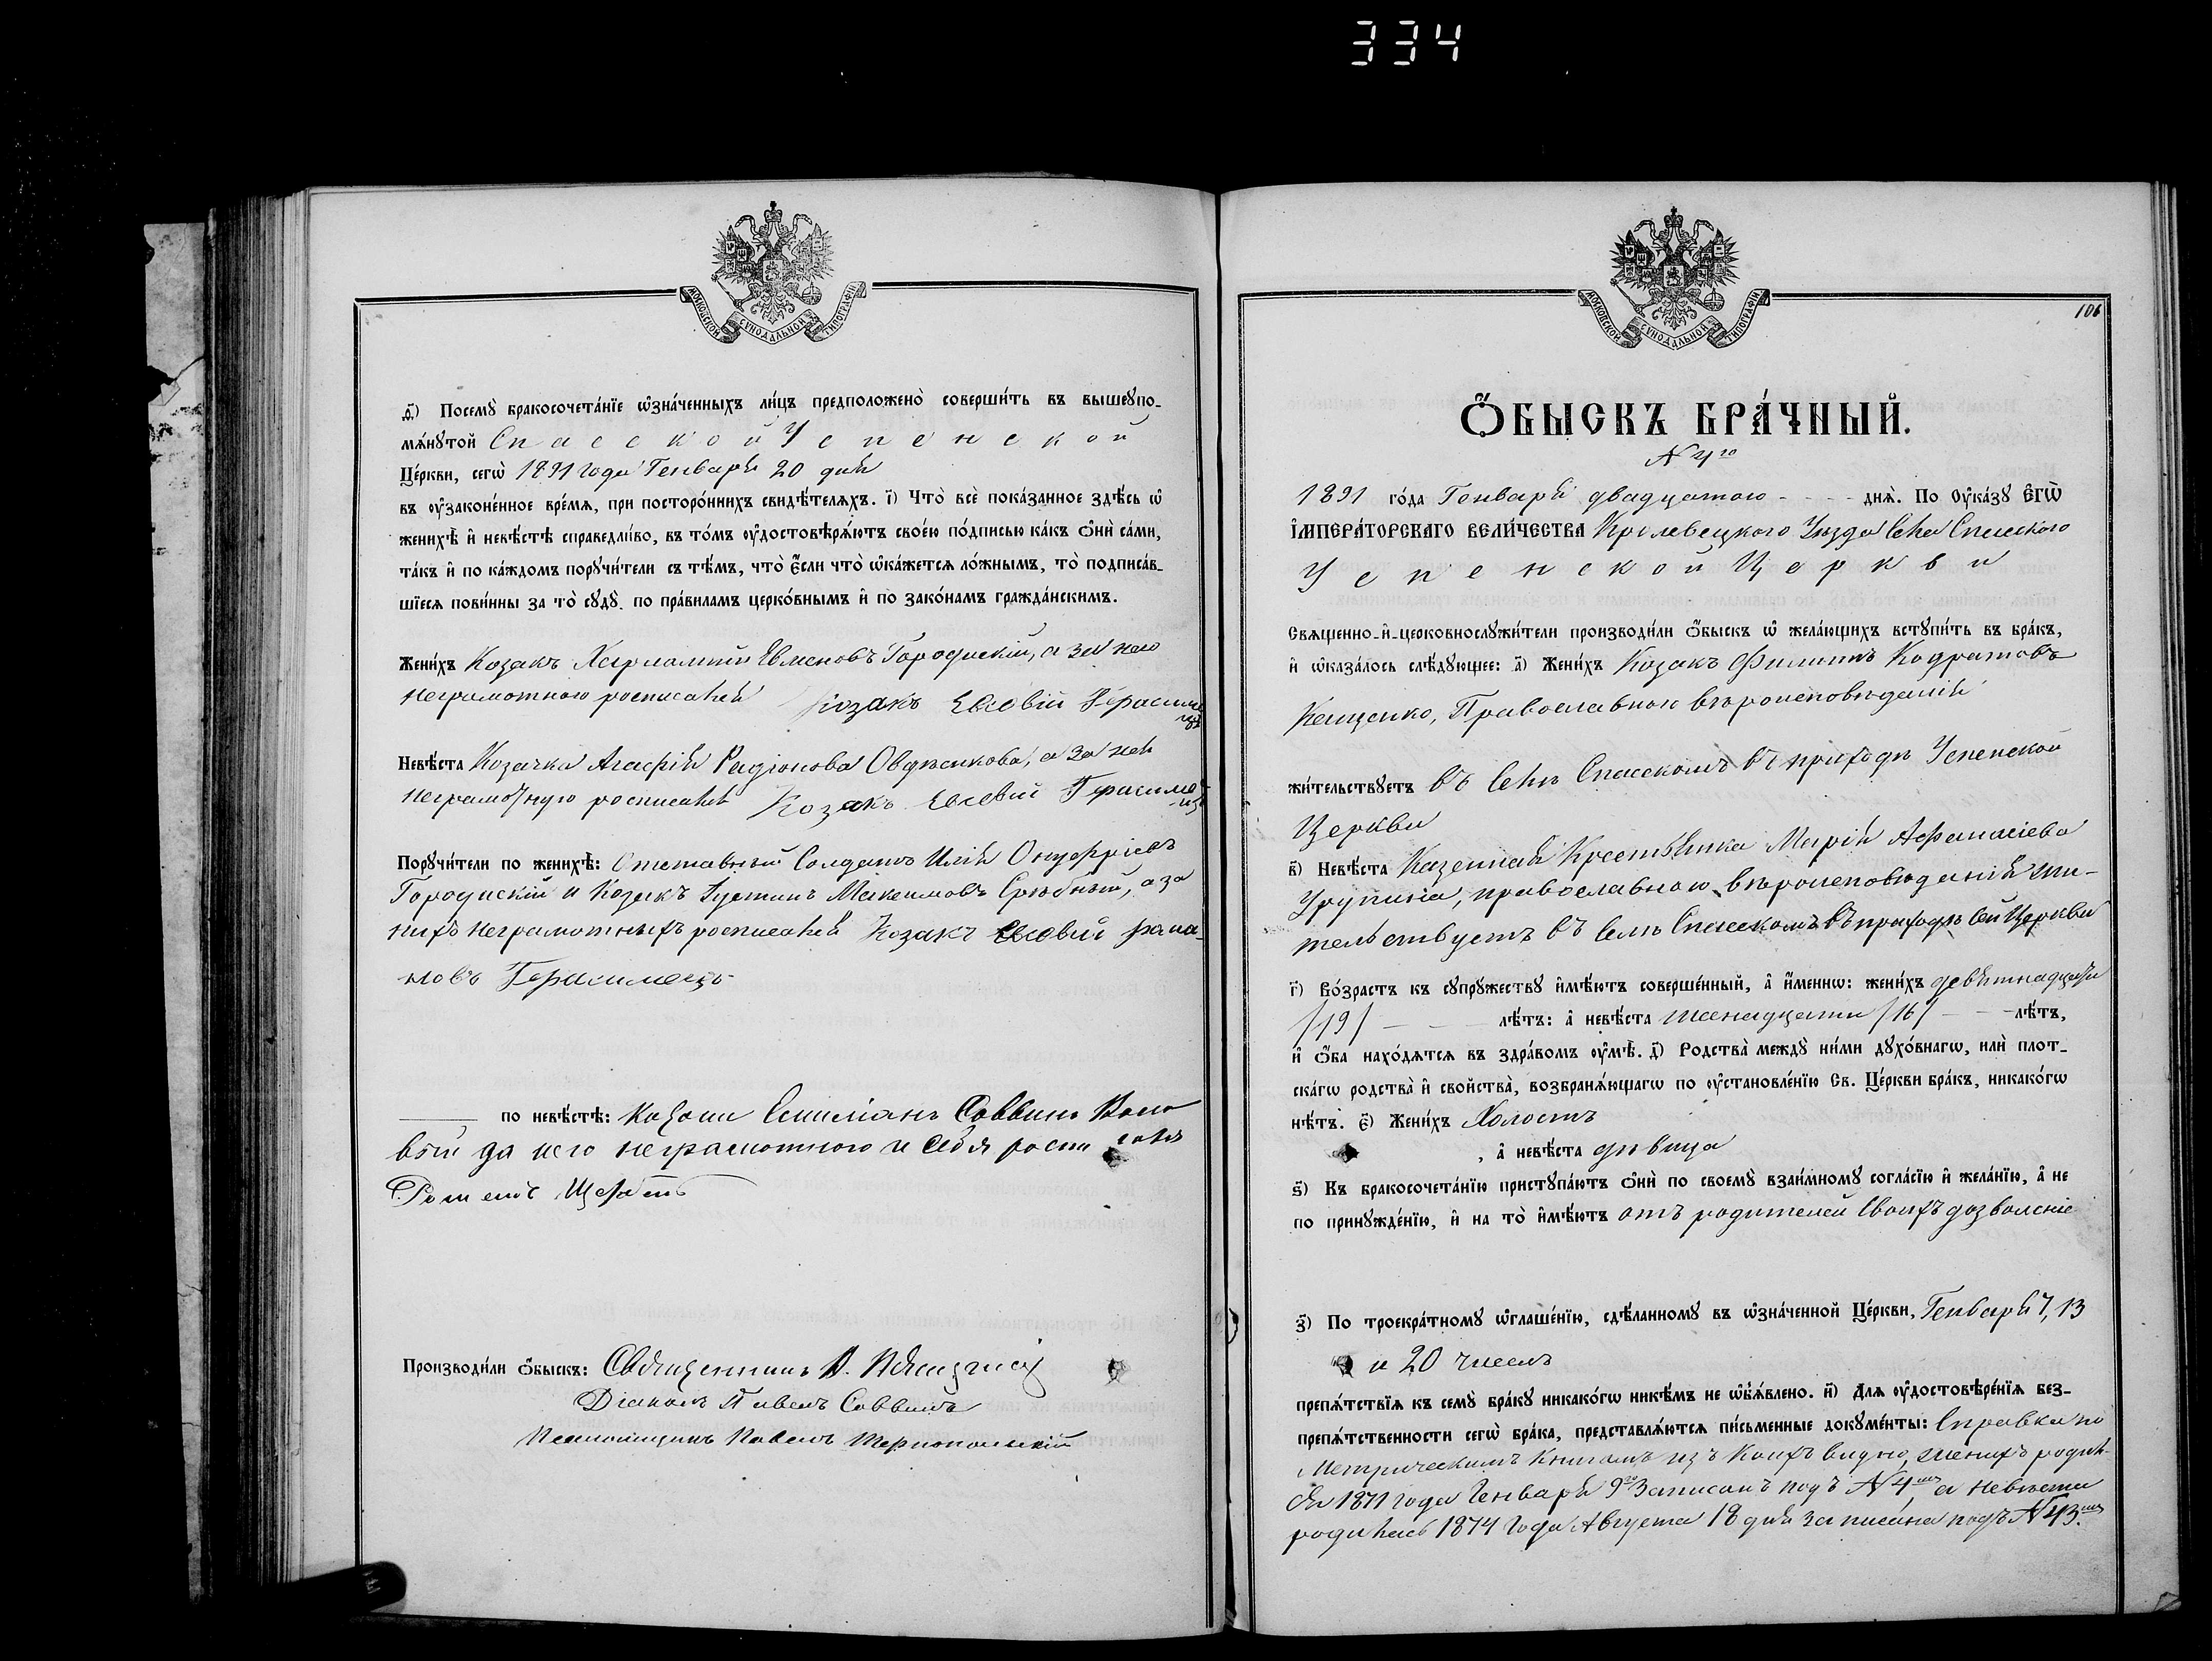 334
МОСКОВСКОЙ СѴНОДАЛЬНОЙ ТИПОГРАФІИ
ѳ҃) Посемꙋ̀ бракосочета́нїе ѡ҆зна́ченныхъ ли́цъ предположено̀ соверши́ть въ вышеꙋпо-
мѧ́нꙋтой Спасской Успенской
Це́ркви, сегѡ̀ 1891 года Генваря 20 дня
въ ᲂу҆законе́нное вре́мѧ, при посторо́ннихъ свидѣ́телѧхъ. і҃) Что̀ всѐ пока́занное здѣ́сь ѡ҆
женихѣ̀ и҆ невѣ́стѣ справедли́во, въ то́мъ ᲂу҆достовѣрѧ́ютъ свое́ю по́дписью ка́къ ѻ҆нѝ са́ми,
та́къ и҆ по ка́ждомъ порꙋчи́тели съ тѣ́мъ, что̀ є҆́сли что̀ ѡ҆ка́жетсѧ ло́жнымъ, то̀ подписа́в-
шїесѧ пови́нны за то̀ сꙋдꙋ̀ по пра́виламъ церко́внымъ и҆ по зако́намъ гражда́нскимъ.
Жени́хъ Козакъ Харлампій Евменовъ Городискій, а за него
неграмотного росписался Козакъ Евсевій Герасиме
нцъ
Невѣ́ста Козачка Агафія Радіонова Овдѣенкова, а за нея
неграмотную росписался Козакъ Евсевій Герасиме
нцъ
Порꙋчи́тели по женихѣ̀: Отставный Солдатъ Илія Онуфріевъ
Городискій и Козакъ Іустинъ Максимовъ Срѣбный, а за
нихъ неграмотныхъ росписался Козакъ Евсевій
новъ Герасимецъ
по невѣ́стѣ: Козаки Емиліанъ Саввинъ
вый за него неграмотного и себя росписался
Щербакъ
Производи́ли ѻ҆́быскъ: Священникъ
Діаконъ Павелъ Саввинъ
Псаломщикъ Павелъ Тернопольскій
МОСКОВСКОЙ СѴНОДАЛЬНОЙ ТИПОГРАФІИ
106
Ѻ҆́БЫСКЪ БРА́ЧНЫЙ.
N 4го
1891 го́да Генваря двадцатого днѧ̀. По Оу҆ка́зꙋ Є҆ГѠ̀
І҆МПЕРА́ТОРСКАГО ВЕЛИ́ЧЕСТВА Кролевецкого Уѣзда Села Спасского
Успенской Церкви
Свѧщенно-и҆-церковнослꙋжи́тели производи́ли ѻ҆́быскъ ѡ҆ жела́ющихъ встꙋпи́ть въ бра́къ,
и҆ ѡ҆каза́лось слѣ́дꙋющее: а҃) Жени́хъ Козакъ Филиппъ Кодратовъ
Кащенко, Православного вѣроисповѣданія
жи́тельствꙋетъ въ Селѣ Спасскомъ въ приходѣ Успенской
Церкви
в҃) Невѣ́ста Казенная Крестьянка Марія Афанасіева
Урупина, православного вѣроисповѣданія жи-
тельствуетъ въ Селѣ Спасскомъ въ приходѣ сей Церкви
г҃) Во́зрастъ къ сꙋпрꙋ́жествꙋ и҆мѣ́ютъ соверше́нный, а҆ и҆́меннѡ: жени́хъ девятнадцати
/19/ лѣ́тъ: а҆ невѣ́ста шеснадцати /16/ лѣ́тъ,
и҆ ѻ҆́ба нахо́дѧтсѧ въ здра́вомъ ᲂу҆мѣ̀. д҃) Родства̀ междꙋ̀ ни́ми дꙋхо́внагѡ, илѝ плот-
ска́гѡ родства̀ и҆ свойства̀, возбранѧ́ющагѡ по ᲂу҆становле́нїю Св. Це́ркви бра́къ, никако́гѡ
нѣ́тъ. є҃) Жени́хъ Холостъ
, а҆ невѣ́ста дѣвица
ѕ҃) Къ бракосочета́нїю пристꙋпа́ютъ ѻ҆нѝ по своемꙋ̀ взаи́мномꙋ согла́сїю и҆ жела́нїю, а҆ не
по принꙋжде́нїю, и҆ на то̀ и҆мѣ́ютъ отъ родителей своихъ дозволеніе
з҃) По троекра́тномꙋ ѡ҆глаше́нїю, сдѣ́ланномꙋ въ ѡ҆зна́ченной Це́ркви, Генваря 7, 13
и 20 числъ
препѧ́тствїѧ къ семꙋ̀ бра́кꙋ никако́гѡ никѣ́мъ не ѡ҆б̾ѧ́влено. и҃) Для ᲂу҆достовѣре́нїѧ без-
препѧ́тственности сегѡ̀ бра́ка, представлѧ́ютсѧ пи́сьменные докꙋме́нты: Справка по
Метрическимъ Книгамъ изъ коихъ видно, женихъ родил-
ся 1871 года Генваря 9го Записанъ подъ N 4мъ, а невѣста
родилась 1874 года Августа 18 дня записана подъ N 43.мъ